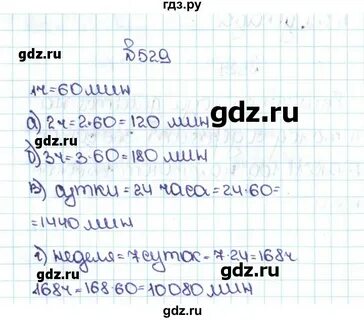 гдз.ру
gdz.ru
№529
gdz.ru
1ч=60мин
gdz.ru
а) 2ч=2·60=120 мин
б) 3ч=3·60=180 мин
в) сутки=24 часа=24·60=
=1440мин
gdz.ru
gdz.ru
г) неделя=7суток=7·24=168ч
168ч=168·60=10080мин
gdz.ru